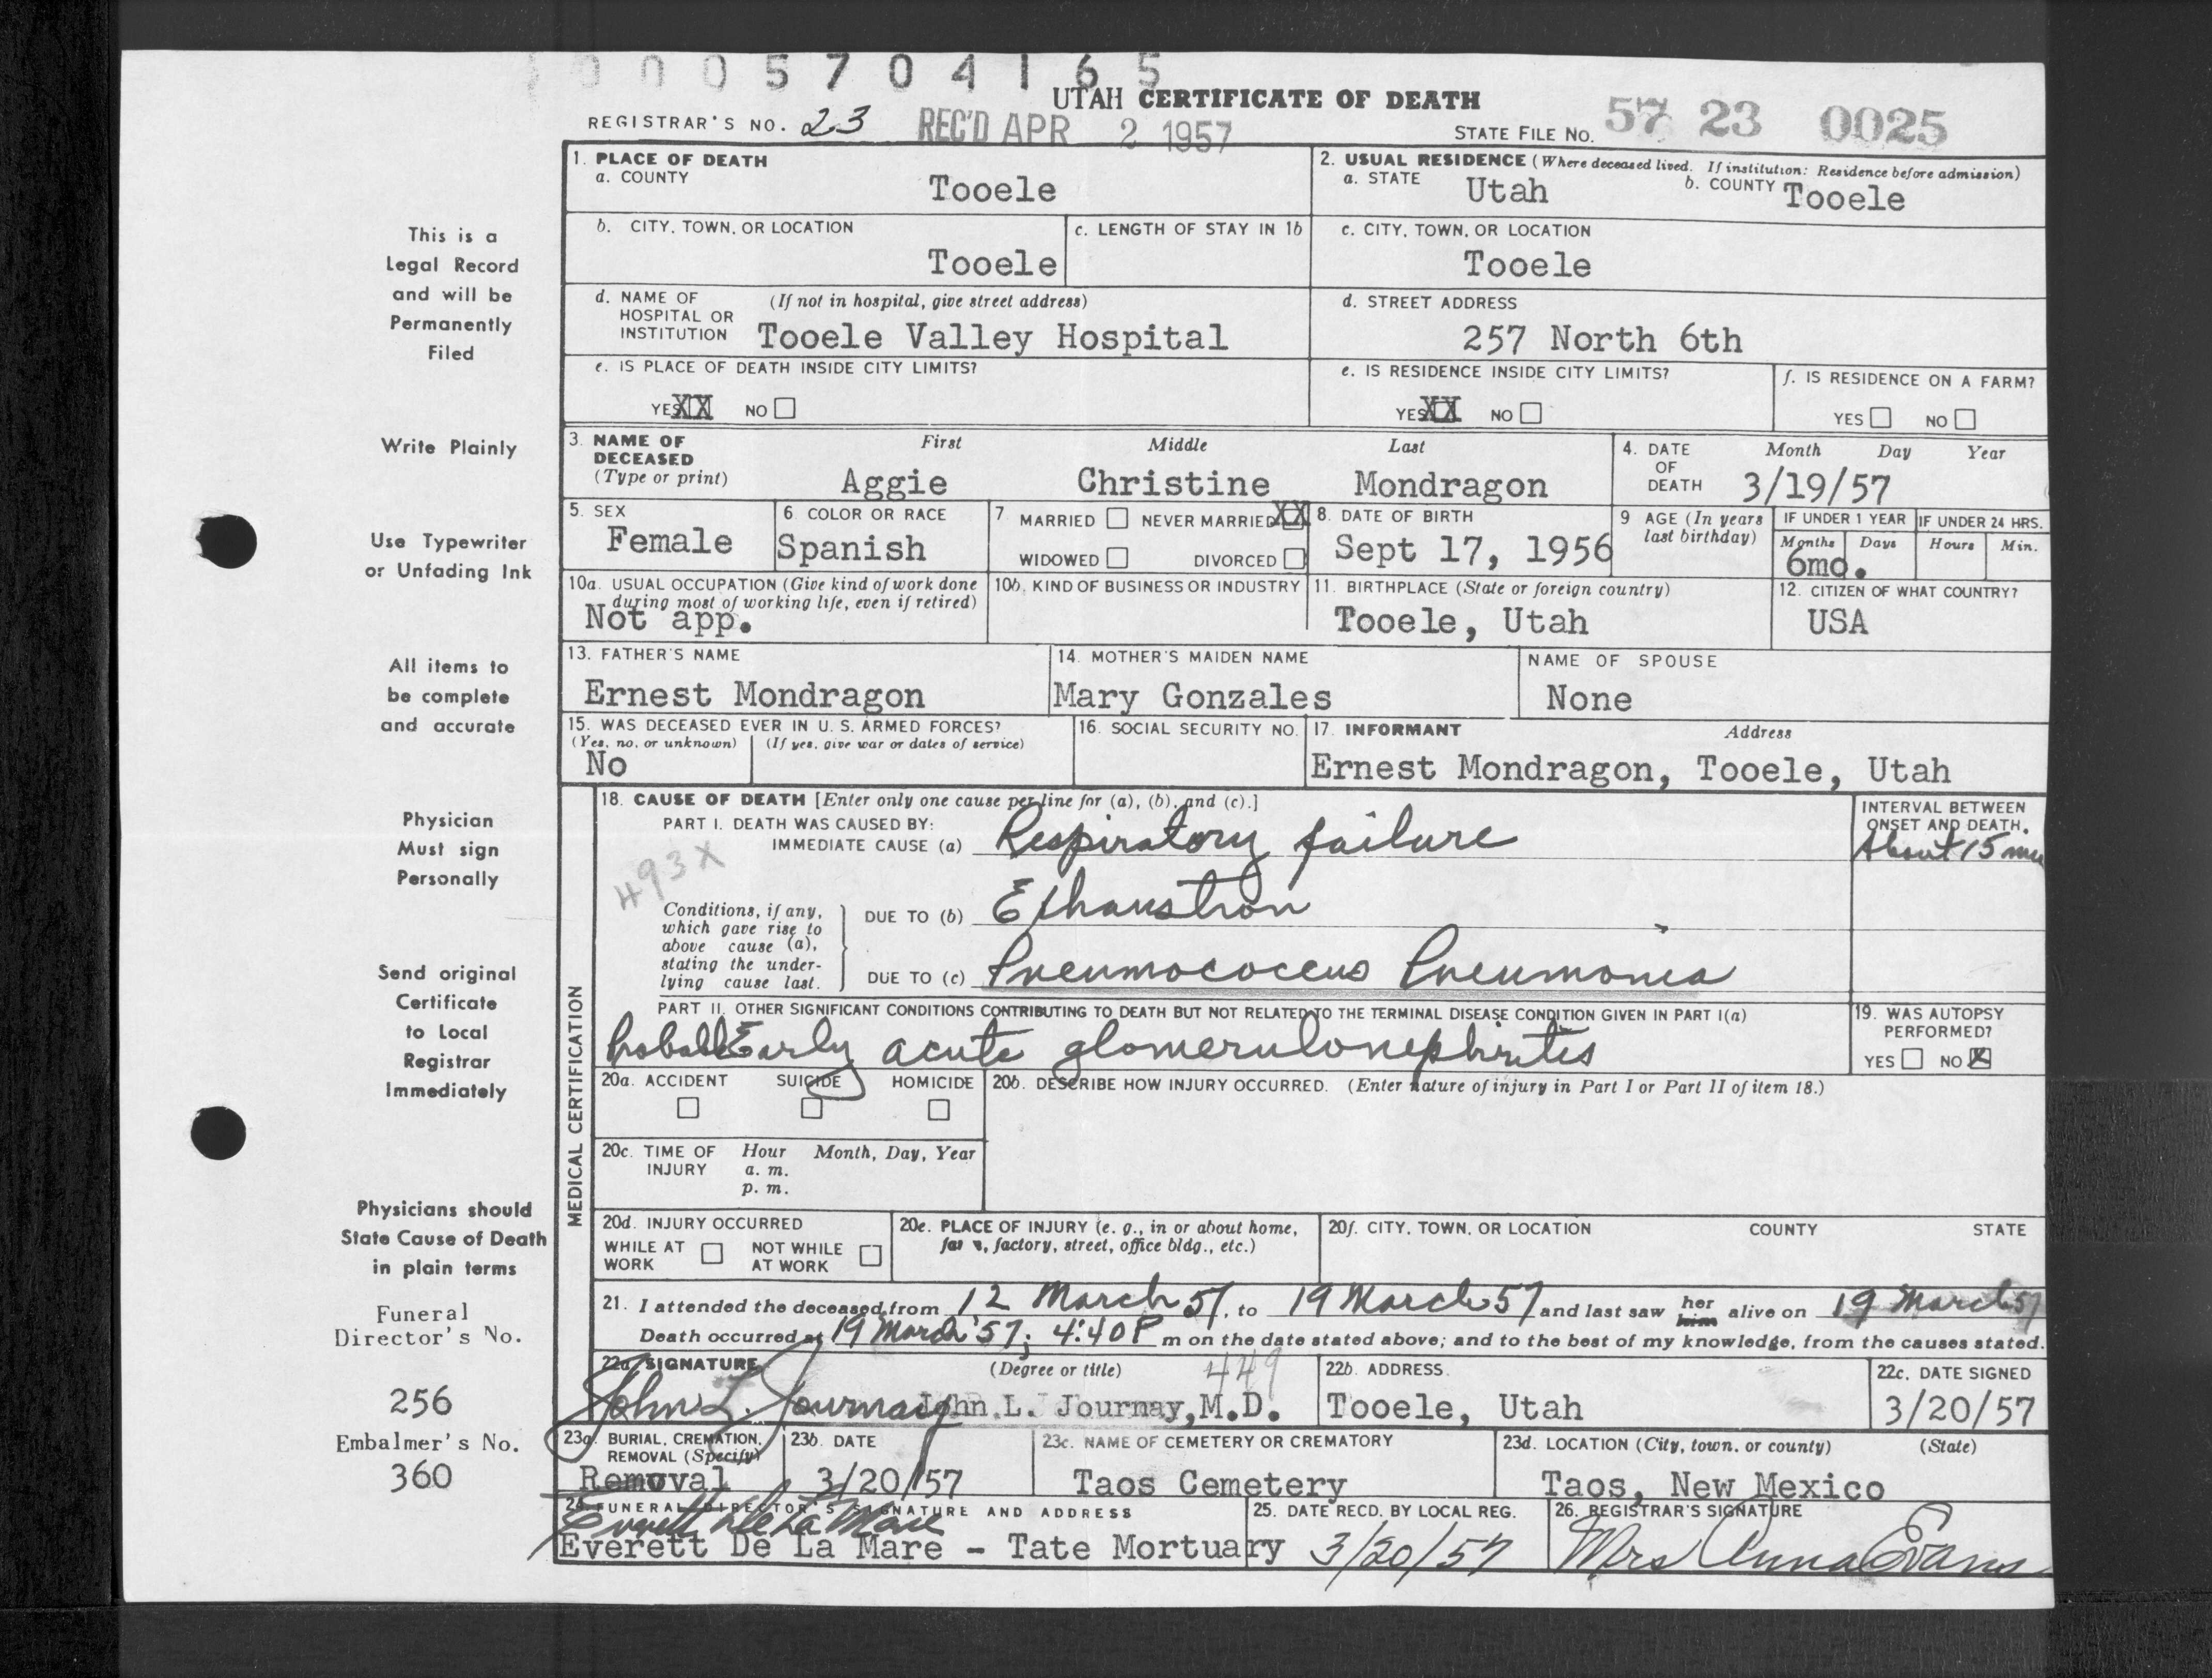 0005704165
UTAH CERTIFICATE OF DEATH
REGISTRAR'S NO. 23 REC'D APR 2 1957 STATE FILE NO. 57 23 0025
This is a
Legal Record
and will be
Permanently
Filed
Write Plainly
Use Typewriter
or Unfading Ink
All items to
be complete
and accurate
Physician
Must sign
Personally
Send original
Certificate
to Local
Registrar
Immediately
Physicians should
State Cause of Death
in plain terms
Funeral
Director's No.
256
Embalmer's No.
360
1. PLACE OF DEATH
a. COUNTY
Tooele
2. USUAL RESIDENCE (Where deceased lived. If institution: Residence before admission)
a. STATE Utah b. COUNTY Tooele
b. CITY, TOWN, OR LOCATION
Tooele
c. LENGTH OF STAY IN 1b
c. CITY, TOWN, OR LOCATION
Tooele
d. NAME OF (If not in hospital, give street address)
HOSPITAL OR
INSTITUTION Tooele Valley Hospital
d. STREET ADDRESS
257 North 6th
e. IS PLACE OF DEATH INSIDE CITY LIMITS?
YES XX NO
e. IS RESIDENCE INSIDE CITY LIMITS?
YES XX NO
f. IS RESIDENCE ON A FARM?
YES NO
3. NAME OF DECEASED (Type or print)
First Middle Last
Aggie Christine Mondragon
4. DATE OF DEATH
Month Day Year
3/19/57
5. SEX
Female
6. COLOR OR RACE
Spanish
7. MARRIED NEVER MARRIED XX
WIDOWED DIVORCED
8. DATE OF BIRTH
Sept 17, 1956
9 AGE (In years
last birthday)
IF UNDER 1 YEAR IF UNDER 24 HRS.
Months Days Hours Min.
6mo.
10a. USUAL OCCUPATION (Give kind of work done
during most of working life, even if retired)
Not app.
10b. KIND OF BUSINESS OR INDUSTRY
11. BIRTHPLACE (State or foreign country)
Tooele, Utah
12. CITIZEN OF WHAT COUNTRY?
USA
13. FATHER'S NAME
Ernest Mondragon
14. MOTHER'S MAIDEN NAME
Mary Gonzales
NAME OF SPOUSE
None
15. WAS DECEASED EVER IN U. S. ARMED FORCES?
(Yes, no, or unknown) (If yes, give war or dates of service)
No
16. SOCIAL SECURITY NO.
17. INFORMANT Address
Ernest Mondragon, Tooele, Utah
MEDICAL CERTIFICATION
18. CAUSE OF DEATH [Enter only one cause per line for (a), (b), and (c).]
PART I. DEATH WAS CAUSED BY:
IMMEDIATE CAUSE (a) Respiratory failure
INTERVAL BETWEEN
ONSET AND DEATH.
About 15 min
493X
Conditions, if any,
which gave rise to
above cause (a),
stating the under-
lying cause last.
DUE TO (b) Exhaustion
DUE TO (c) Pneumococcus Pneumonia
PART II. OTHER SIGNIFICANT CONDITIONS CONTRIBUTING TO DEATH BUT NOT RELATED TO THE TERMINAL DISEASE CONDITION GIVEN IN PART I(a)
Early acute glomerulonephritis
19. WAS AUTOPSY
PERFORMED?
YES NO X
20a. ACCIDENT SUICIDE HOMICIDE
20b. DESCRIBE HOW INJURY OCCURRED. (Enter nature of injury in Part I or Part II of item 18.)
20c. TIME OF INJURY
Hour Month, Day, Year
a. m.
p. m.
20d. INJURY OCCURRED
WHILE AT WORK NOT WHILE AT WORK
20e. PLACE OF INJURY (e. g., in or about home,
farm, factory, street, office bldg., etc.)
20f. CITY, TOWN, OR LOCATION COUNTY STATE
21. I attended the deceased from 12 March 57, to 19 March 57 and last saw her him alive on 19 March 57
Death occurred at 19 March '57; 4:40 P m on the date stated above; and to the best of my knowledge, from the causes stated.
22a. SIGNATURE (Degree or title) 449
John L. Journay John L. Journay, M.D.
22b. ADDRESS
Tooele, Utah
22c. DATE SIGNED
3/20/57
23a. BURIAL, CREMATION,
REMOVAL (Specify)
Removal
23b. DATE
3/20/57
23c. NAME OF CEMETERY OR CREMATORY
Taos Cemetery
23d. LOCATION (City, town, or county) (State)
Taos, New Mexico
24. FUNERAL DIRECTOR'S SIGNATURE AND ADDRESS
Everett De La Mare
Everett De La Mare - Tate Mortuary
25. DATE RECD. BY LOCAL REG.
3/20/57
26. REGISTRAR'S SIGNATURE
Mrs Anna Evans